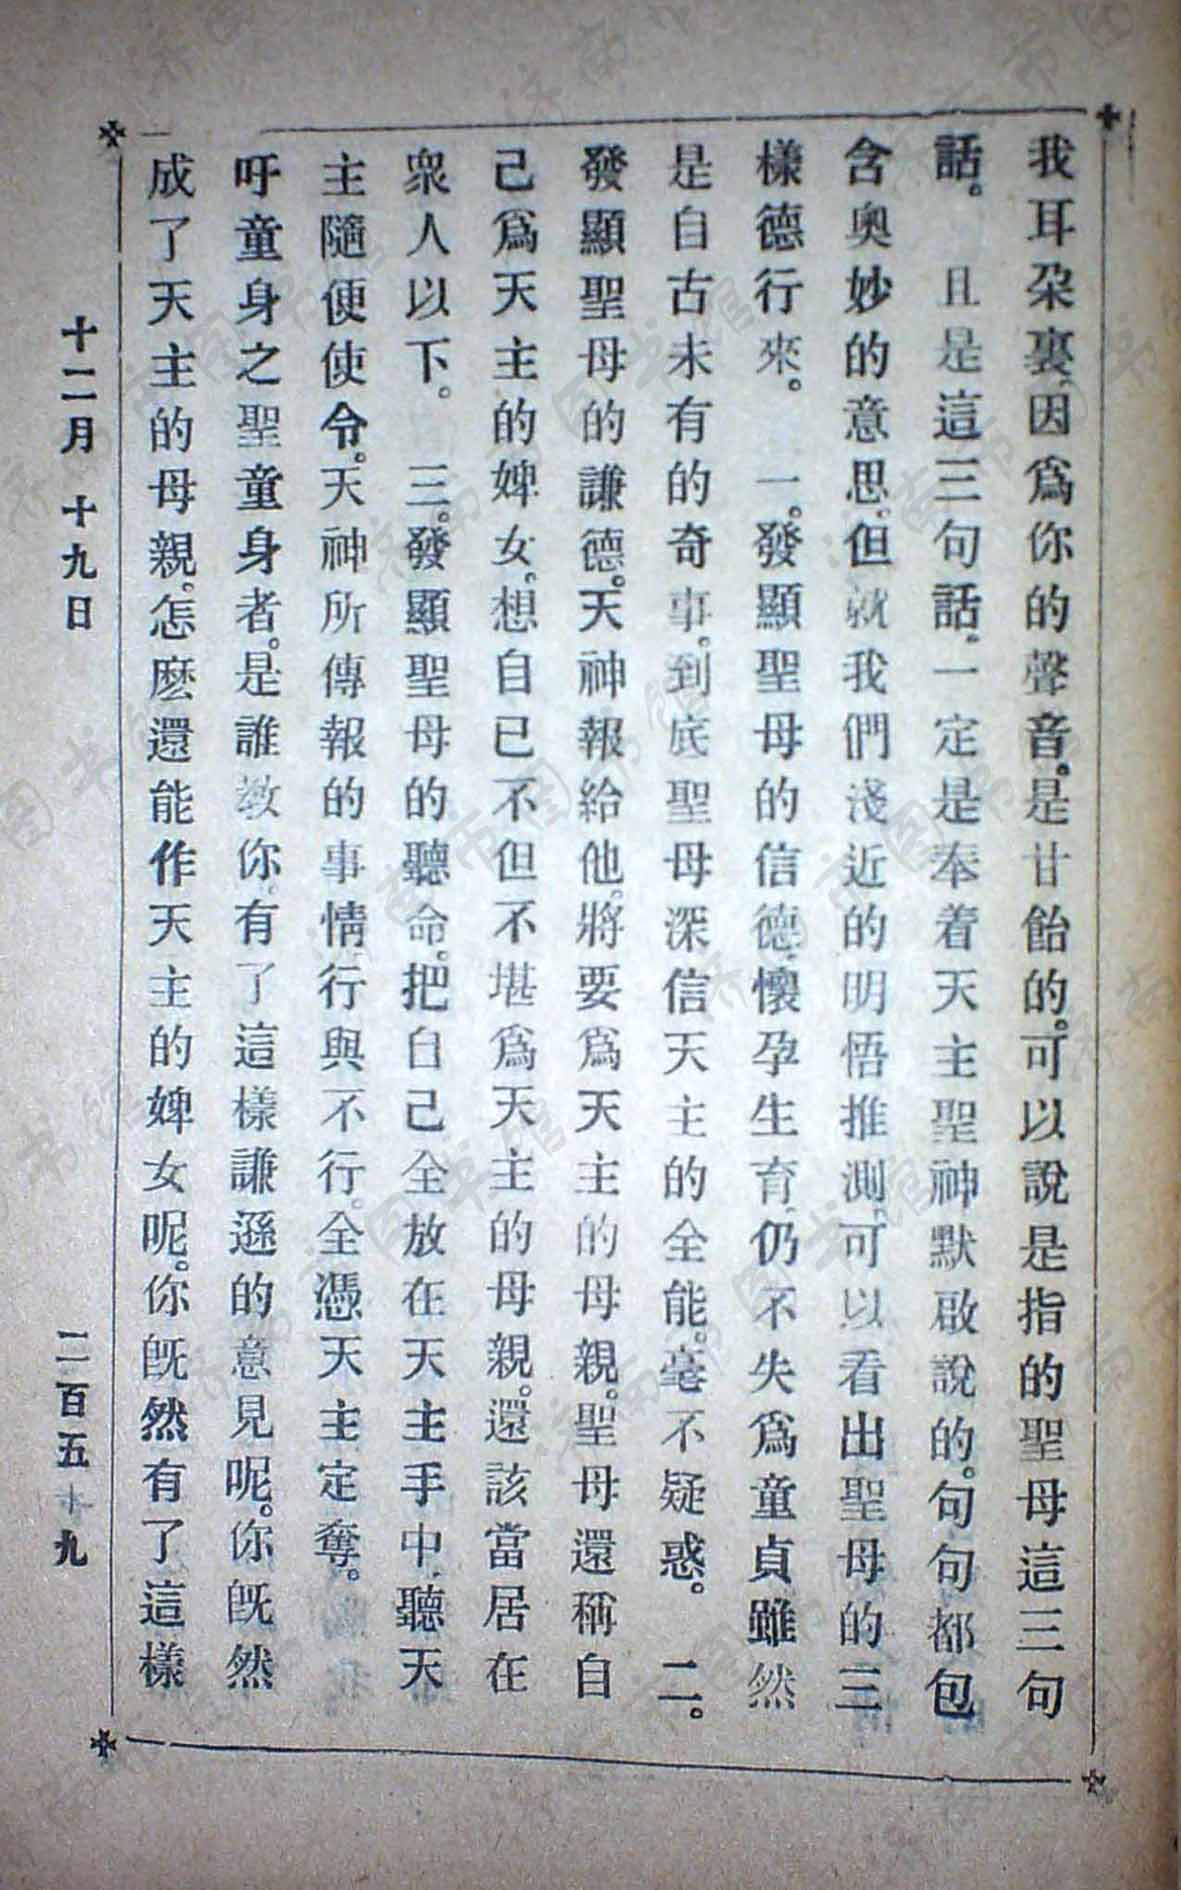 我耳朶裏、因爲你的聲音。是甘飴的。可以說是指的聖母這三句
話。　且是這三句話。一定是奉着天主聖神默啟說的。句句都包
含奧妙的意思、但就我們淺近的明悟推測、可以看出聖母的三
樣德行來。　一。發顯聖母的信德、懷孕生育、仍不失爲童貞雖然
是自古未有的奇事。到底聖母深信天主的全能。毫不疑惑。　二。
發顯聖母的謙德。天神報給他。將要爲天主的母親。聖母還稱自
己爲天主的婢女。想自己不但不堪爲天主的母親。還該當居在
衆人以下。　三。發顯聖母的聽命。把自己全放在天主手中、聽天
主隨便使令。天神所傳報的事情行與不行。全憑天主定奪。
吁童身之聖童身者。是誰教你、有了這樣謙遜的意見呢。你旣然
成了天主的母親。怎麽還能作天主的婢女呢。你旣然有了這樣
十二月 十九日　二百五十九